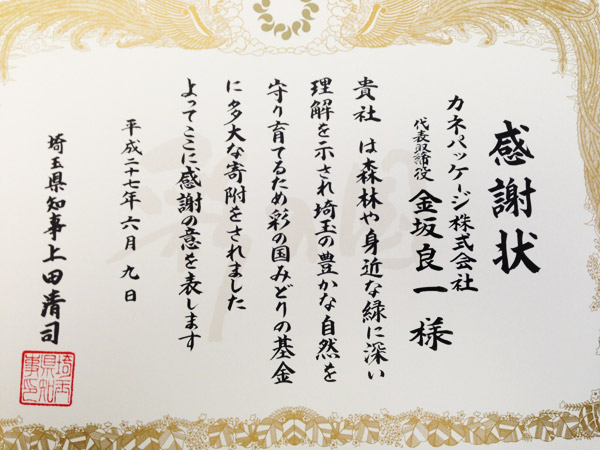 感謝状
カネパッケージ株式会社
代表取締役 金坂良一様
貴社 は森林や身近な緑に深い
理解を示され埼玉の豊かな自然を
守り育てるため彩の国みどりの基金
に多大な寄附をされました
よってここに感謝の意を表します
平成二十七年六月九日
埼玉県知事上田清司
埼玉
県知
事印